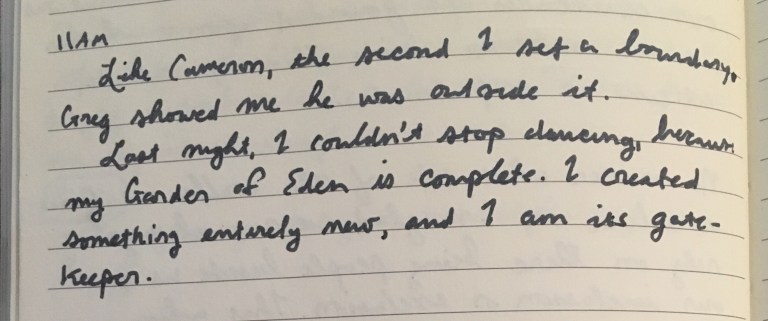 11AM
Like Cameron, the second I set a boundary,
Greg showed me he was outside it.
Last night, I couldn't stop dancing, because
my Garden of Eden is complete. I created
something entirely new, and I am its gate-
keeper.